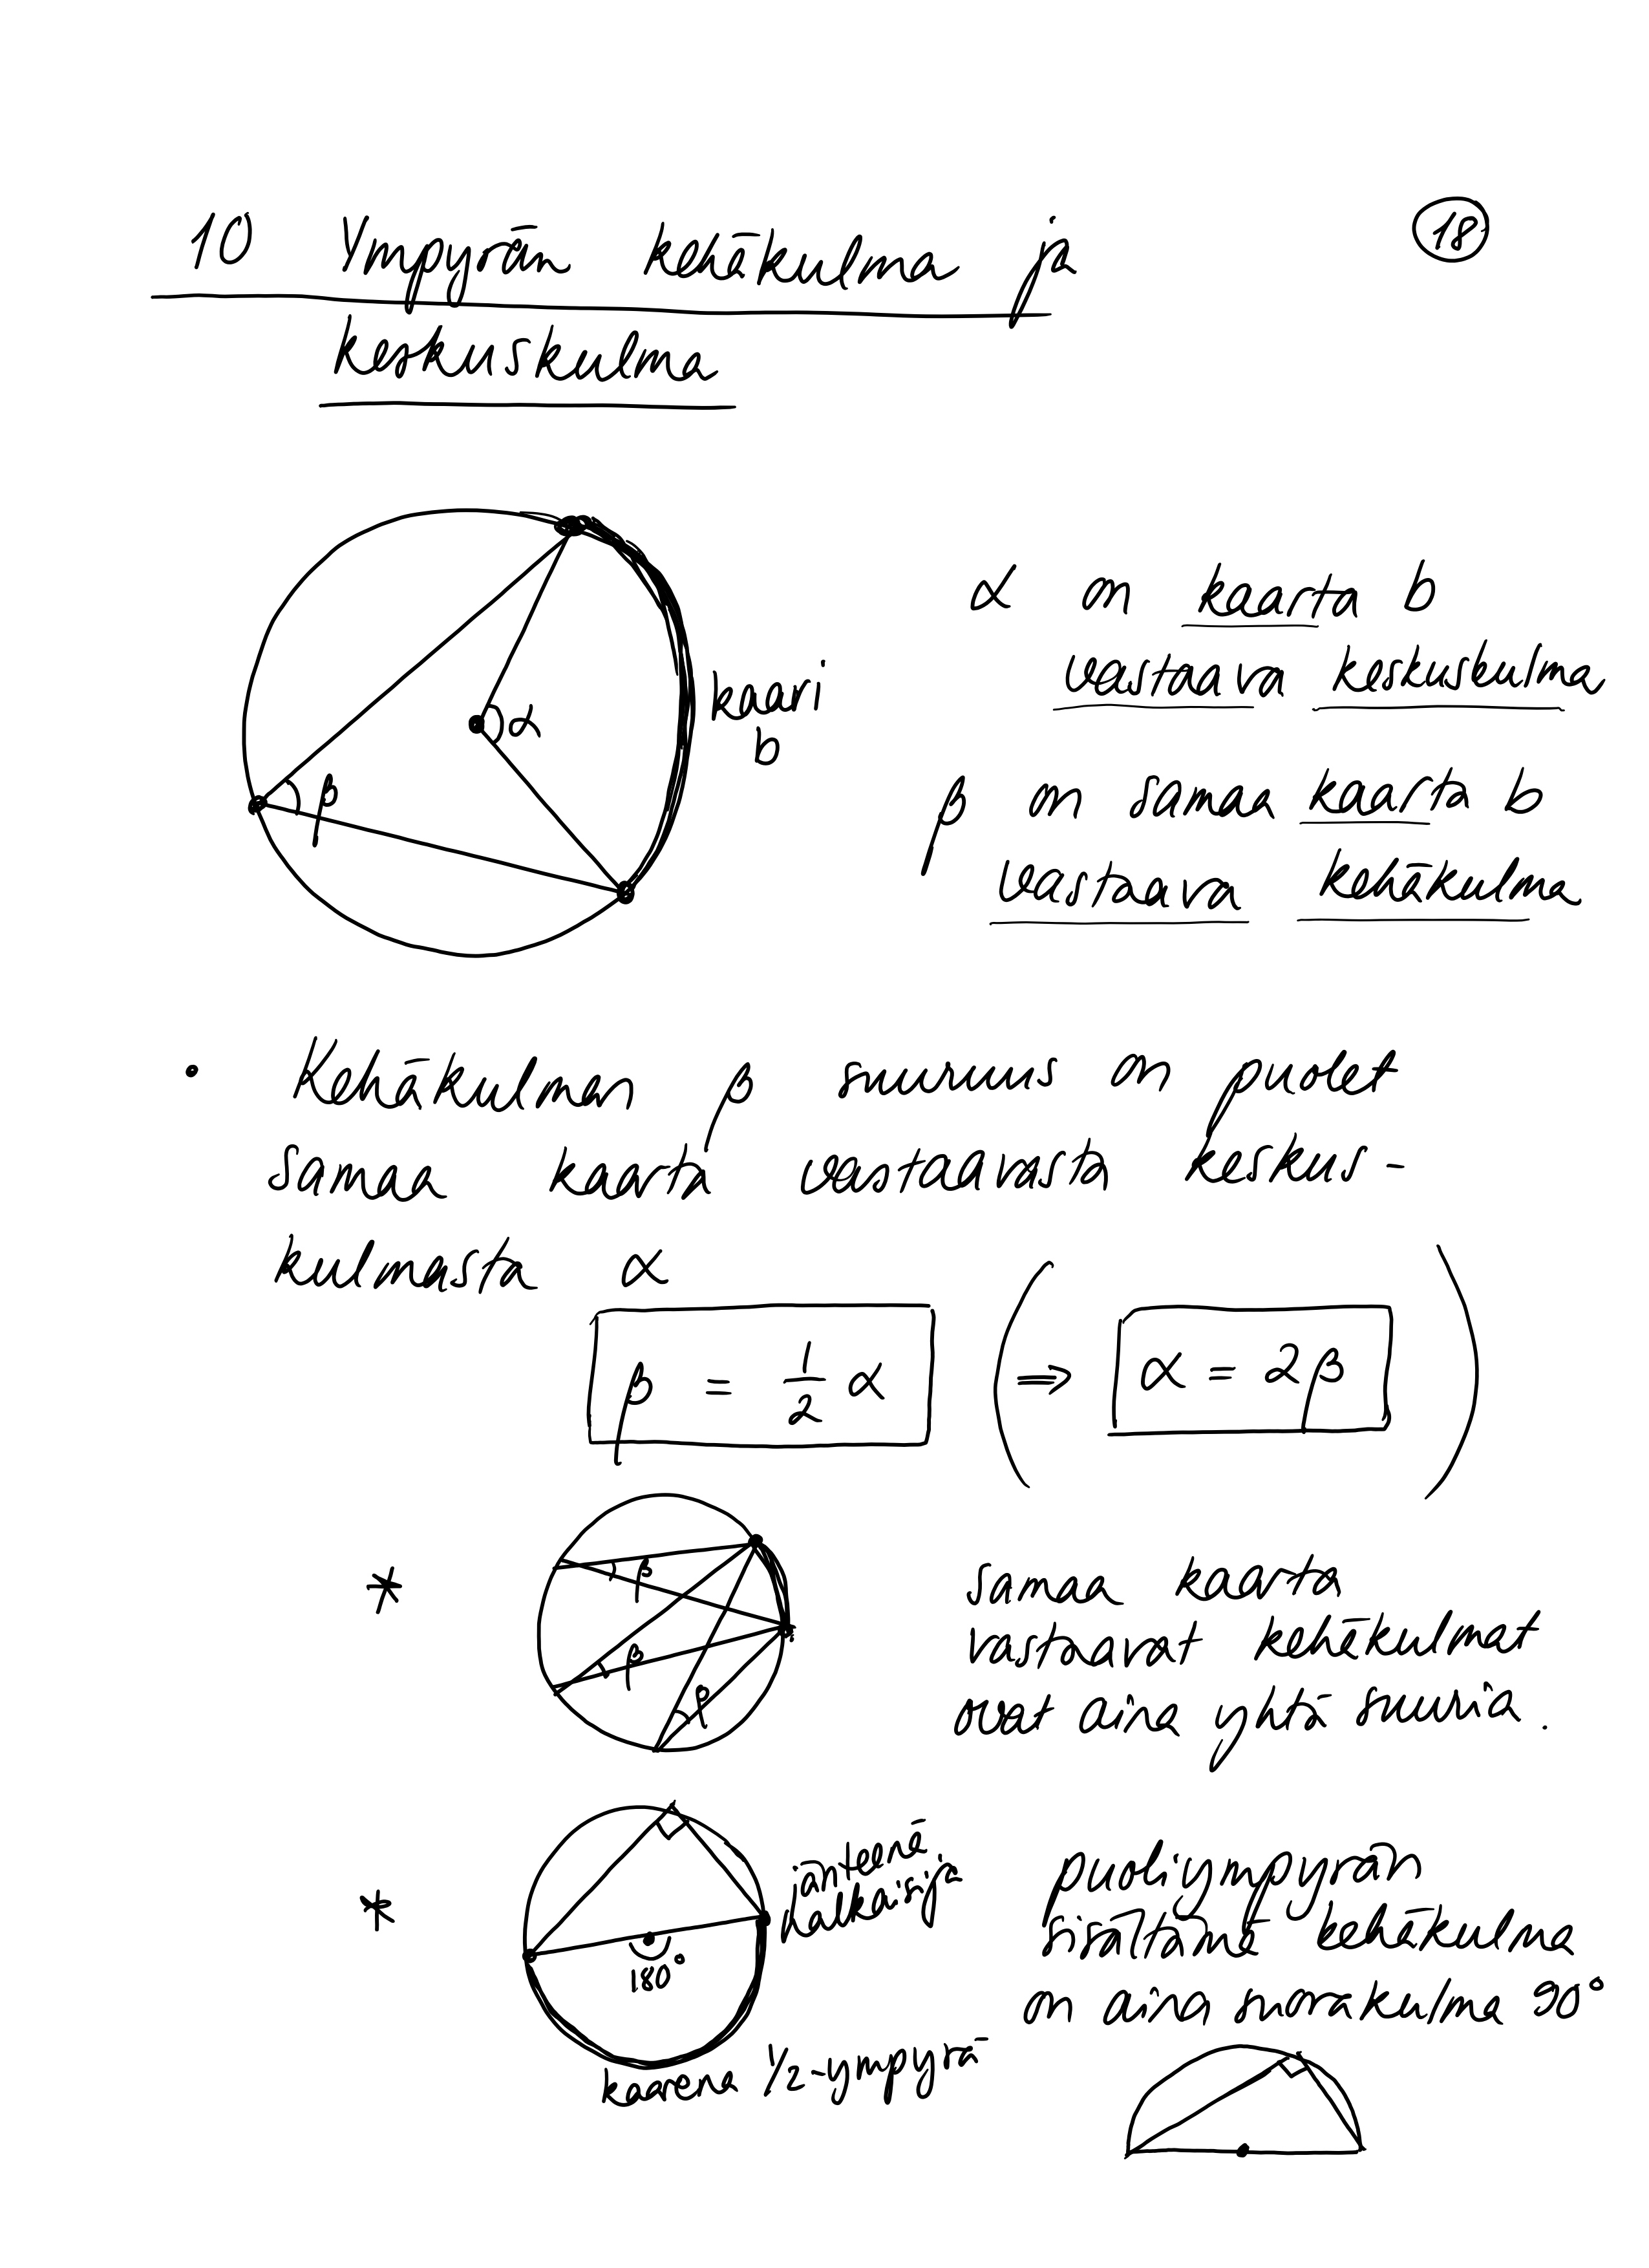 10 Ympyrän kehäkulma ja
18
keskuskulma
α on kaarta b
vastaava keskuskulma
kaari
b
α
β
β on samaa kaarta b
vastaava kehäkulma
• Kehäkulman β suuruus on puolet
samaa kaarta vastaavasta keskus-
kulmasta α
β = 1/2 α ( ⇒ α = 2β )
* β
β
β
samaa kaarta
vastaavat kehäkulmat
ovat aina yhtä suuria.
*
180°
jänteenä
halkaisija
kaarena 1/2-ympyrä
puoliympyrän
sisältämä kehäkulma
on aina suorakulma 90°